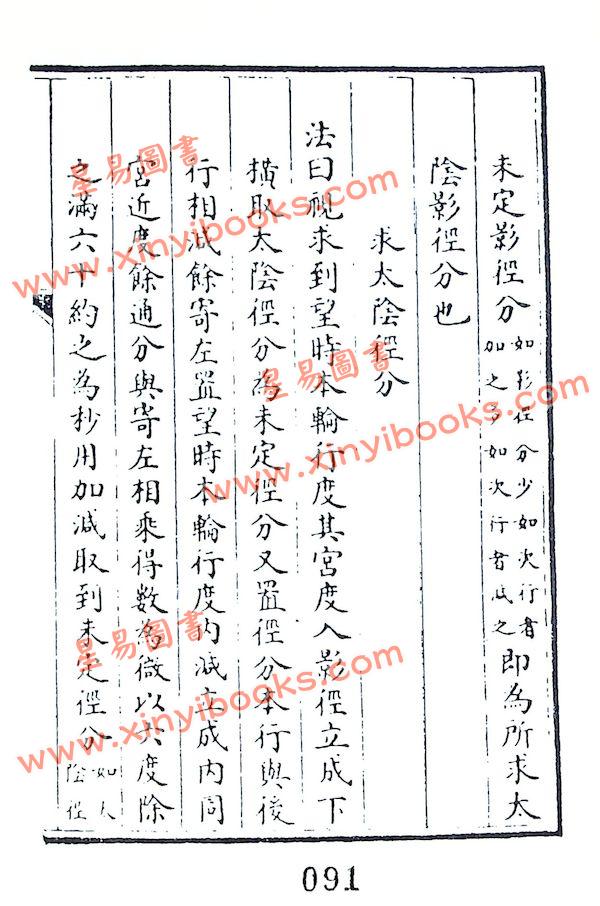 未定影徑分如影徑分少如次行者加之多如次行者减之即為所求太
陰影徑分也
求太陰徑分
法曰視求到望時本輪行度其宮度入影徑立成下
橫取太陰徑分為未定徑分又置徑分本行與後
行相减餘寄左置望時本輪行度内减立成内同
宮近度餘通分與寄左相乘得數為微以六度除
之滿六十約之為秒用加减取到未定徑分如太陰徑
星易圖書
www.xinyibooks.com
星易圖書
www.xinyibooks.com
星易圖書
www.xinyibooks.com
091